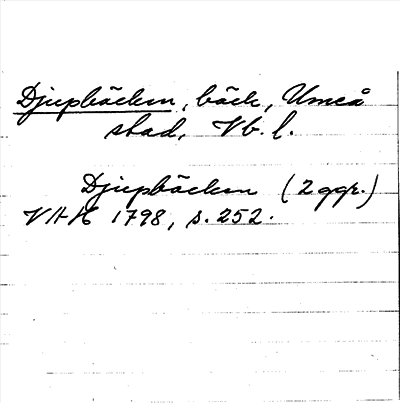 Djupbäcken, bäck, Umeå
stad, Vb. l.
Djupbäcken (2 ggr.)
VAH 1798, s. 252.